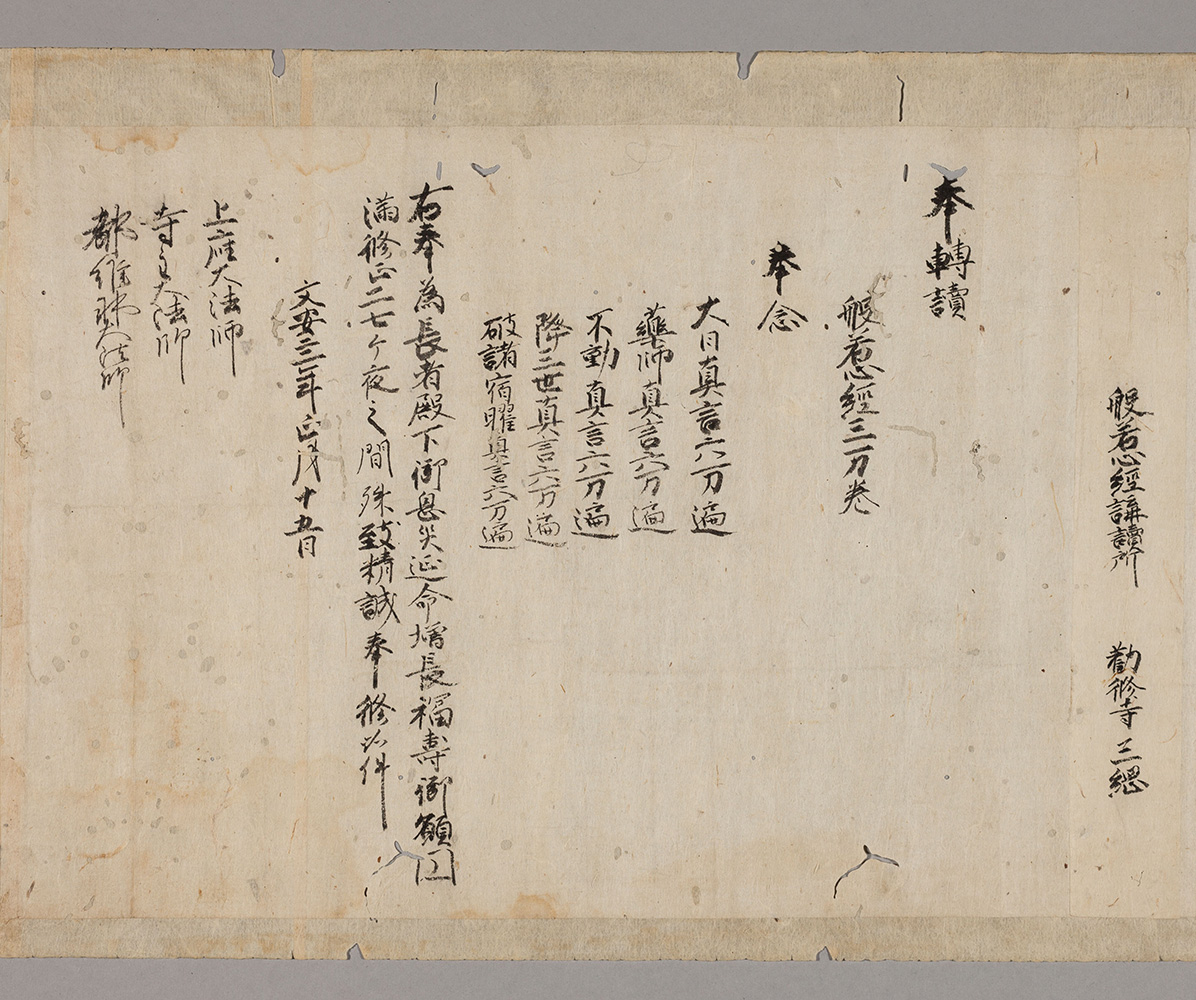 般若心經講讀所 勸修寺三綱
奉轉讀
般若心經三万卷
奉念
大日真言六万遍
藥師真言六万遍
不動真言六万遍
降三世真言六万遍
破諸宿曜真言六万遍
右奉為長者殿下御息災延命增長福壽御願圓
滿修正二七ケ夜之間殊致精誠奉修如件
文安三年正月十五日
上座大法師
寺主大法師
都維那大法師